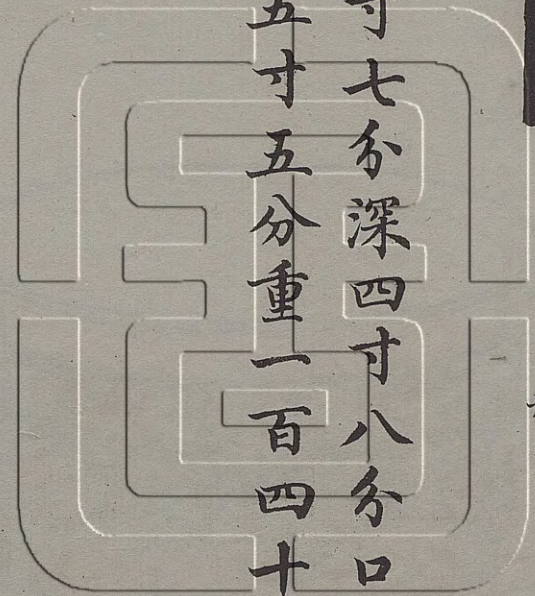 寸七分深四寸八分口
五寸五分重一百四十